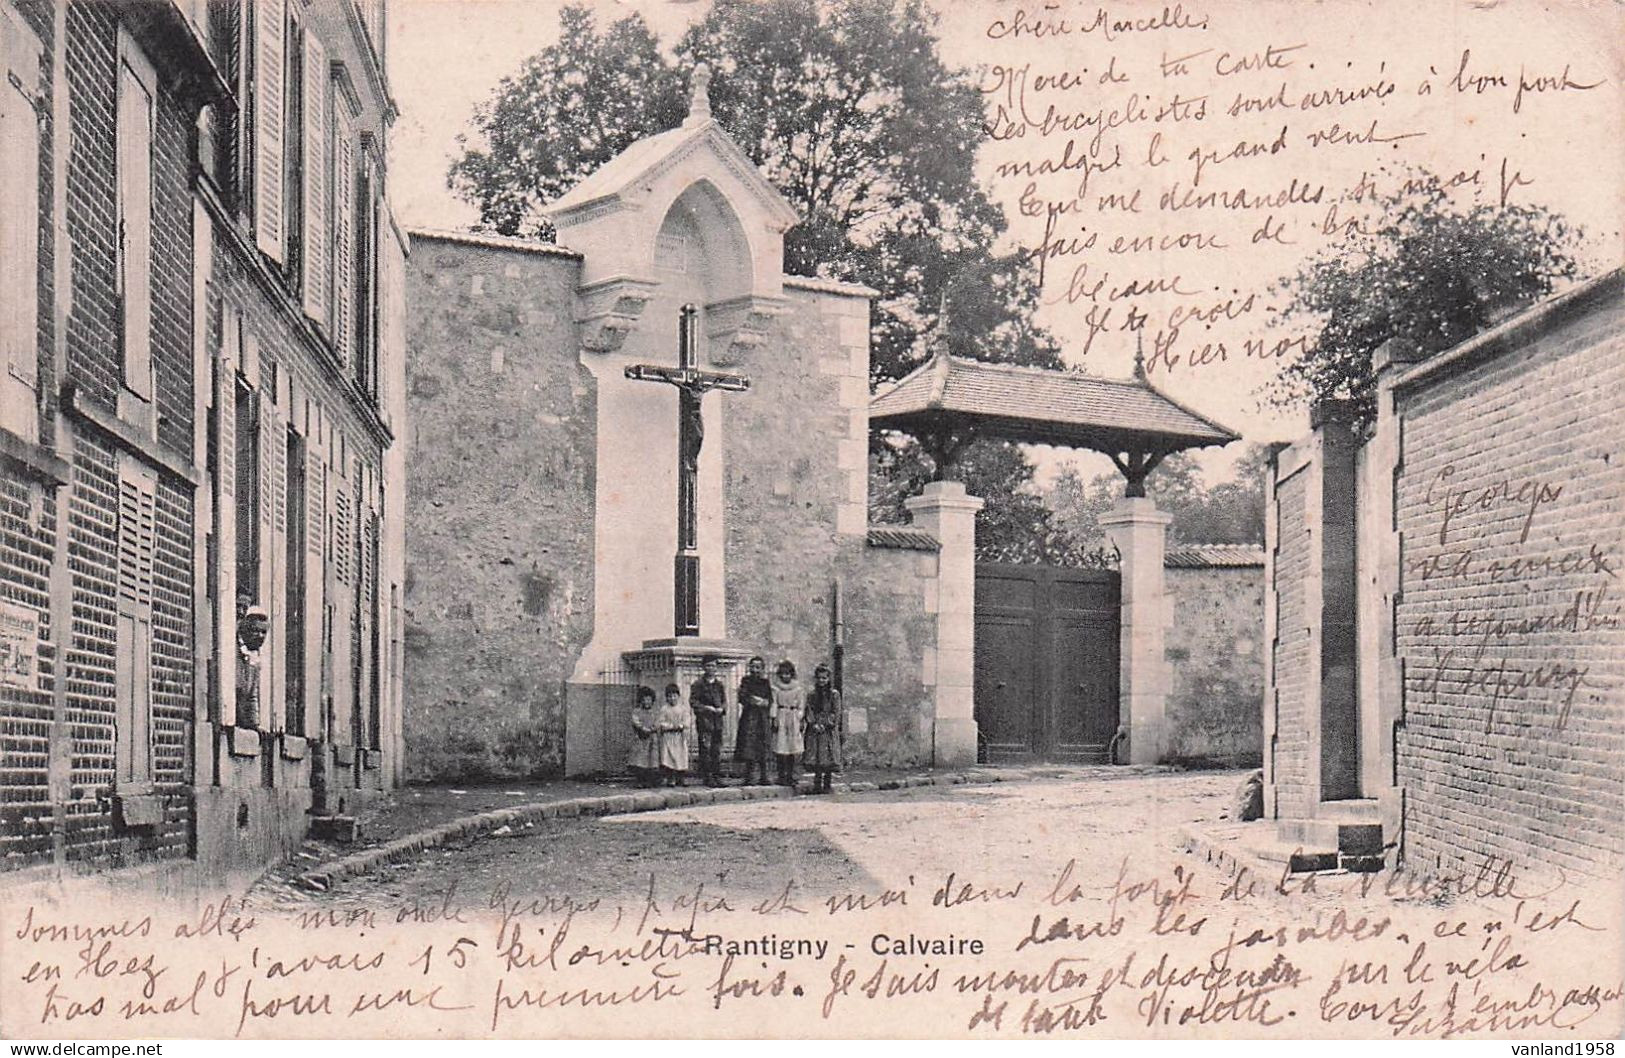 Chère Marcelle,
Merci de ta carte.
Les bicyclistes sont arrivés à bon port
malgré le grand vent.
Tu me demandes si moi je
fais encore de la
bécane
Je te crois.
Hier nous
sommes allés mon oncle Georges, papa et moi dans la forêt de la Neuville
en Hez j'avais 15 kilomètres dans les jambes. ce n'est
pas mal pour une première fois. Je sais monter et descendre sur le vélo
de tante Violette. Tous t'embrassent
Suzanne.
Georges
va mieux
aujourd'hui
il se purge
Rantigny - Calvaire
vanland1958